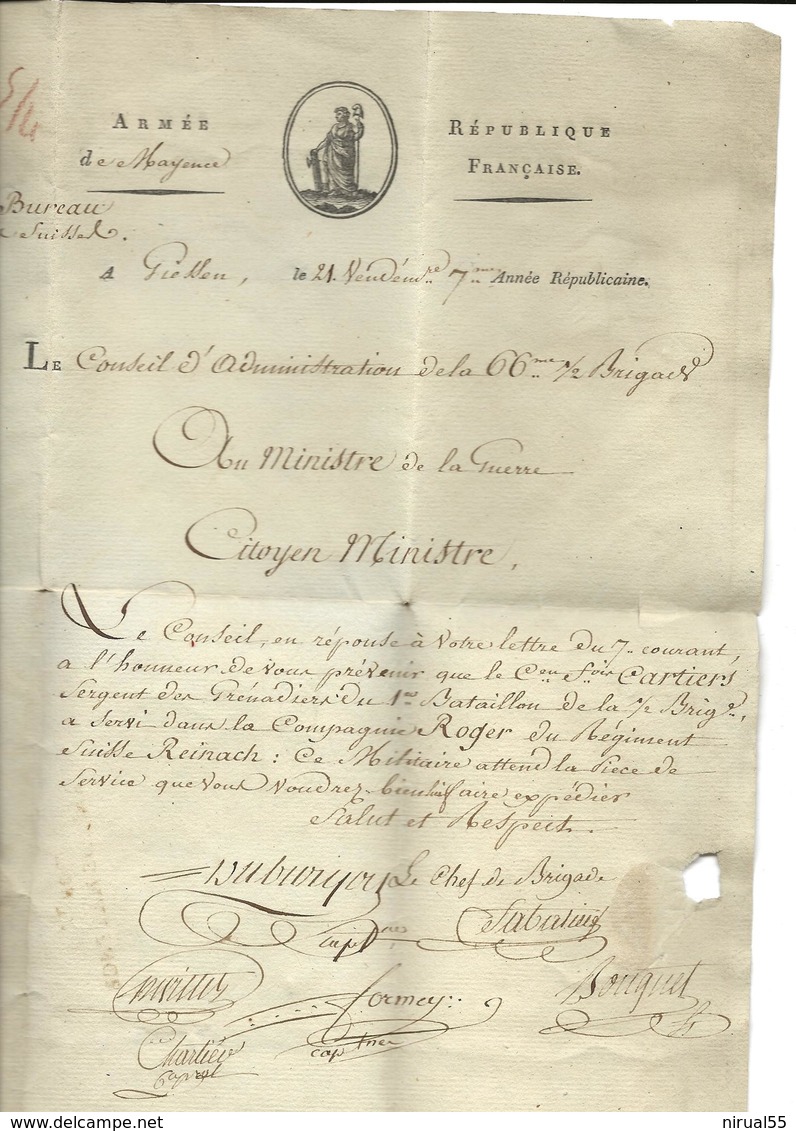 ARMÉE
de Mayence
RÉPUBLIQUE
FRANÇAISE.
Bureau
Suisse
A Giessen, le 21. Vendém.re 7.me Année Républicaine.
LE Conseil d'Administration de la 66.me 1/2 Brigade
Au Ministre de la Guerre
Citoyen Ministre,
Le Conseil, en réponse à votre lettre du 7. courant,
a l'honneur de vous prévenir que le C.en F.ois Cartiers
Sergent des Grénadiers du 1.er Bataillon de la 1/2 Brig.e,
a servi dans la Compagnie Roger du Régiment
Suisse Reinach : Ce Militaire attend la Piece de
Service que vous voudrez bien lui faire expédier
Salut et Respect.
Le Chef de Brigade
Sabatier
cap.ne
formey
Bouquet
Chartier
caporal
delcampe.net
nirual55